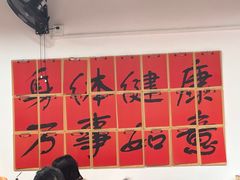 身体健康
万事如意